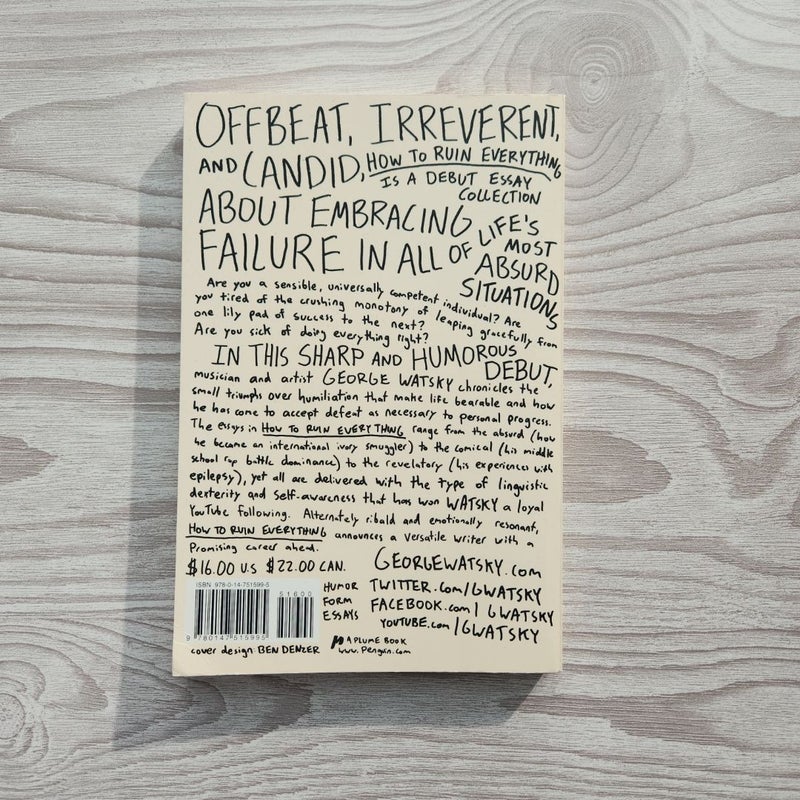 OFFBEAT, IRREVERENT,
AND CANDID, HOW TO RUIN EVERYTHING
IS A DEBUT ESSAY
COLLECTION
ABOUT EMBRACING
FAILURE IN ALL OF LIFE'S
MOST
ABSURD
SITUATIONS
Are you a sensible, universally competent individual? Are
you tired of the crushing monotony of leaping gracefully from
one lily pad of success to the next?
Are you sick of doing everything right?
IN THIS SHARP AND HUMOROUS
DEBUT,
musician and artist GEORGE WATSKY chronicles the
small triumphs over humiliation that make life bearable and how
he has come to accept defeat as necessary to personal progress.
The essays in HOW TO RUIN EVERYTHING range from the absurd (how
he became an international ivory smuggler) to the comical (his middle
school rap battle dominance) to the revelatory (his experiences with
epilepsy), yet all are delivered with the type of linguistic
dexterity and self-awareness that has won WATSKY a loyal
YouTube following. Alternately ribald and emotionally resonant,
HOW TO RUIN EVERYTHING announces a versatile writer with a
promising career ahead.
$16.00 U.S $22.00 CAN.
GEORGEWATSKY.com
TWITTER.com/GWATSKY
FACEBOOK.com/GWATSKY
YOUTUBE.com/GWATSKY
ISBN 978-0-14-751599-5
51600
9 780147 515995
HUMOR
FORM
ESSAYS
cover design BEN DENZER
A PLUME BOOK
www.Penguin.com